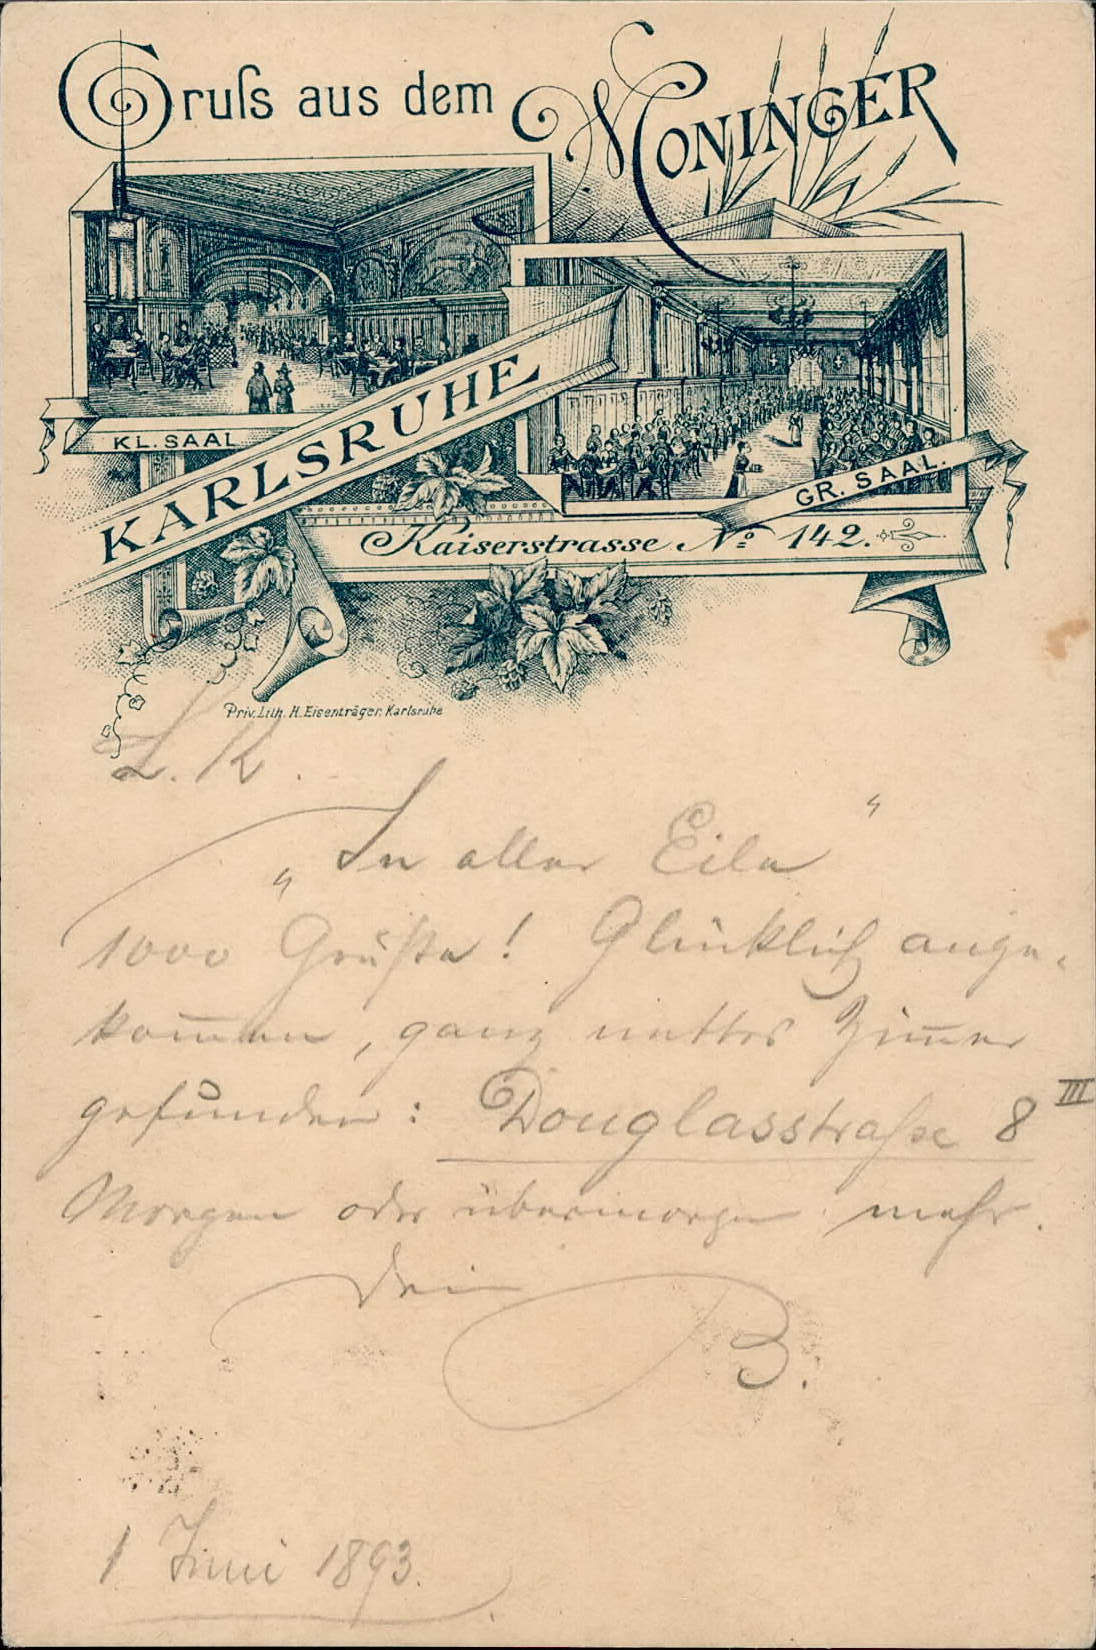 Gruſs aus dem MONINGER
KL. SAAL
KARLSRUHE
GR. SAAL.
Kaiserstrasse No 142.
Priv. Lith. H. Eisenträger, Karlsruhe
L. K.
„In aller Eile"
1000 Grüße! Glücklich ange-
kom̅en, ganz nettes Zim̅er
gefunden: Douglasstraſse 8 III
Morgen oder übermorgen mehr.
Dein
B.
1 Juni 1893.